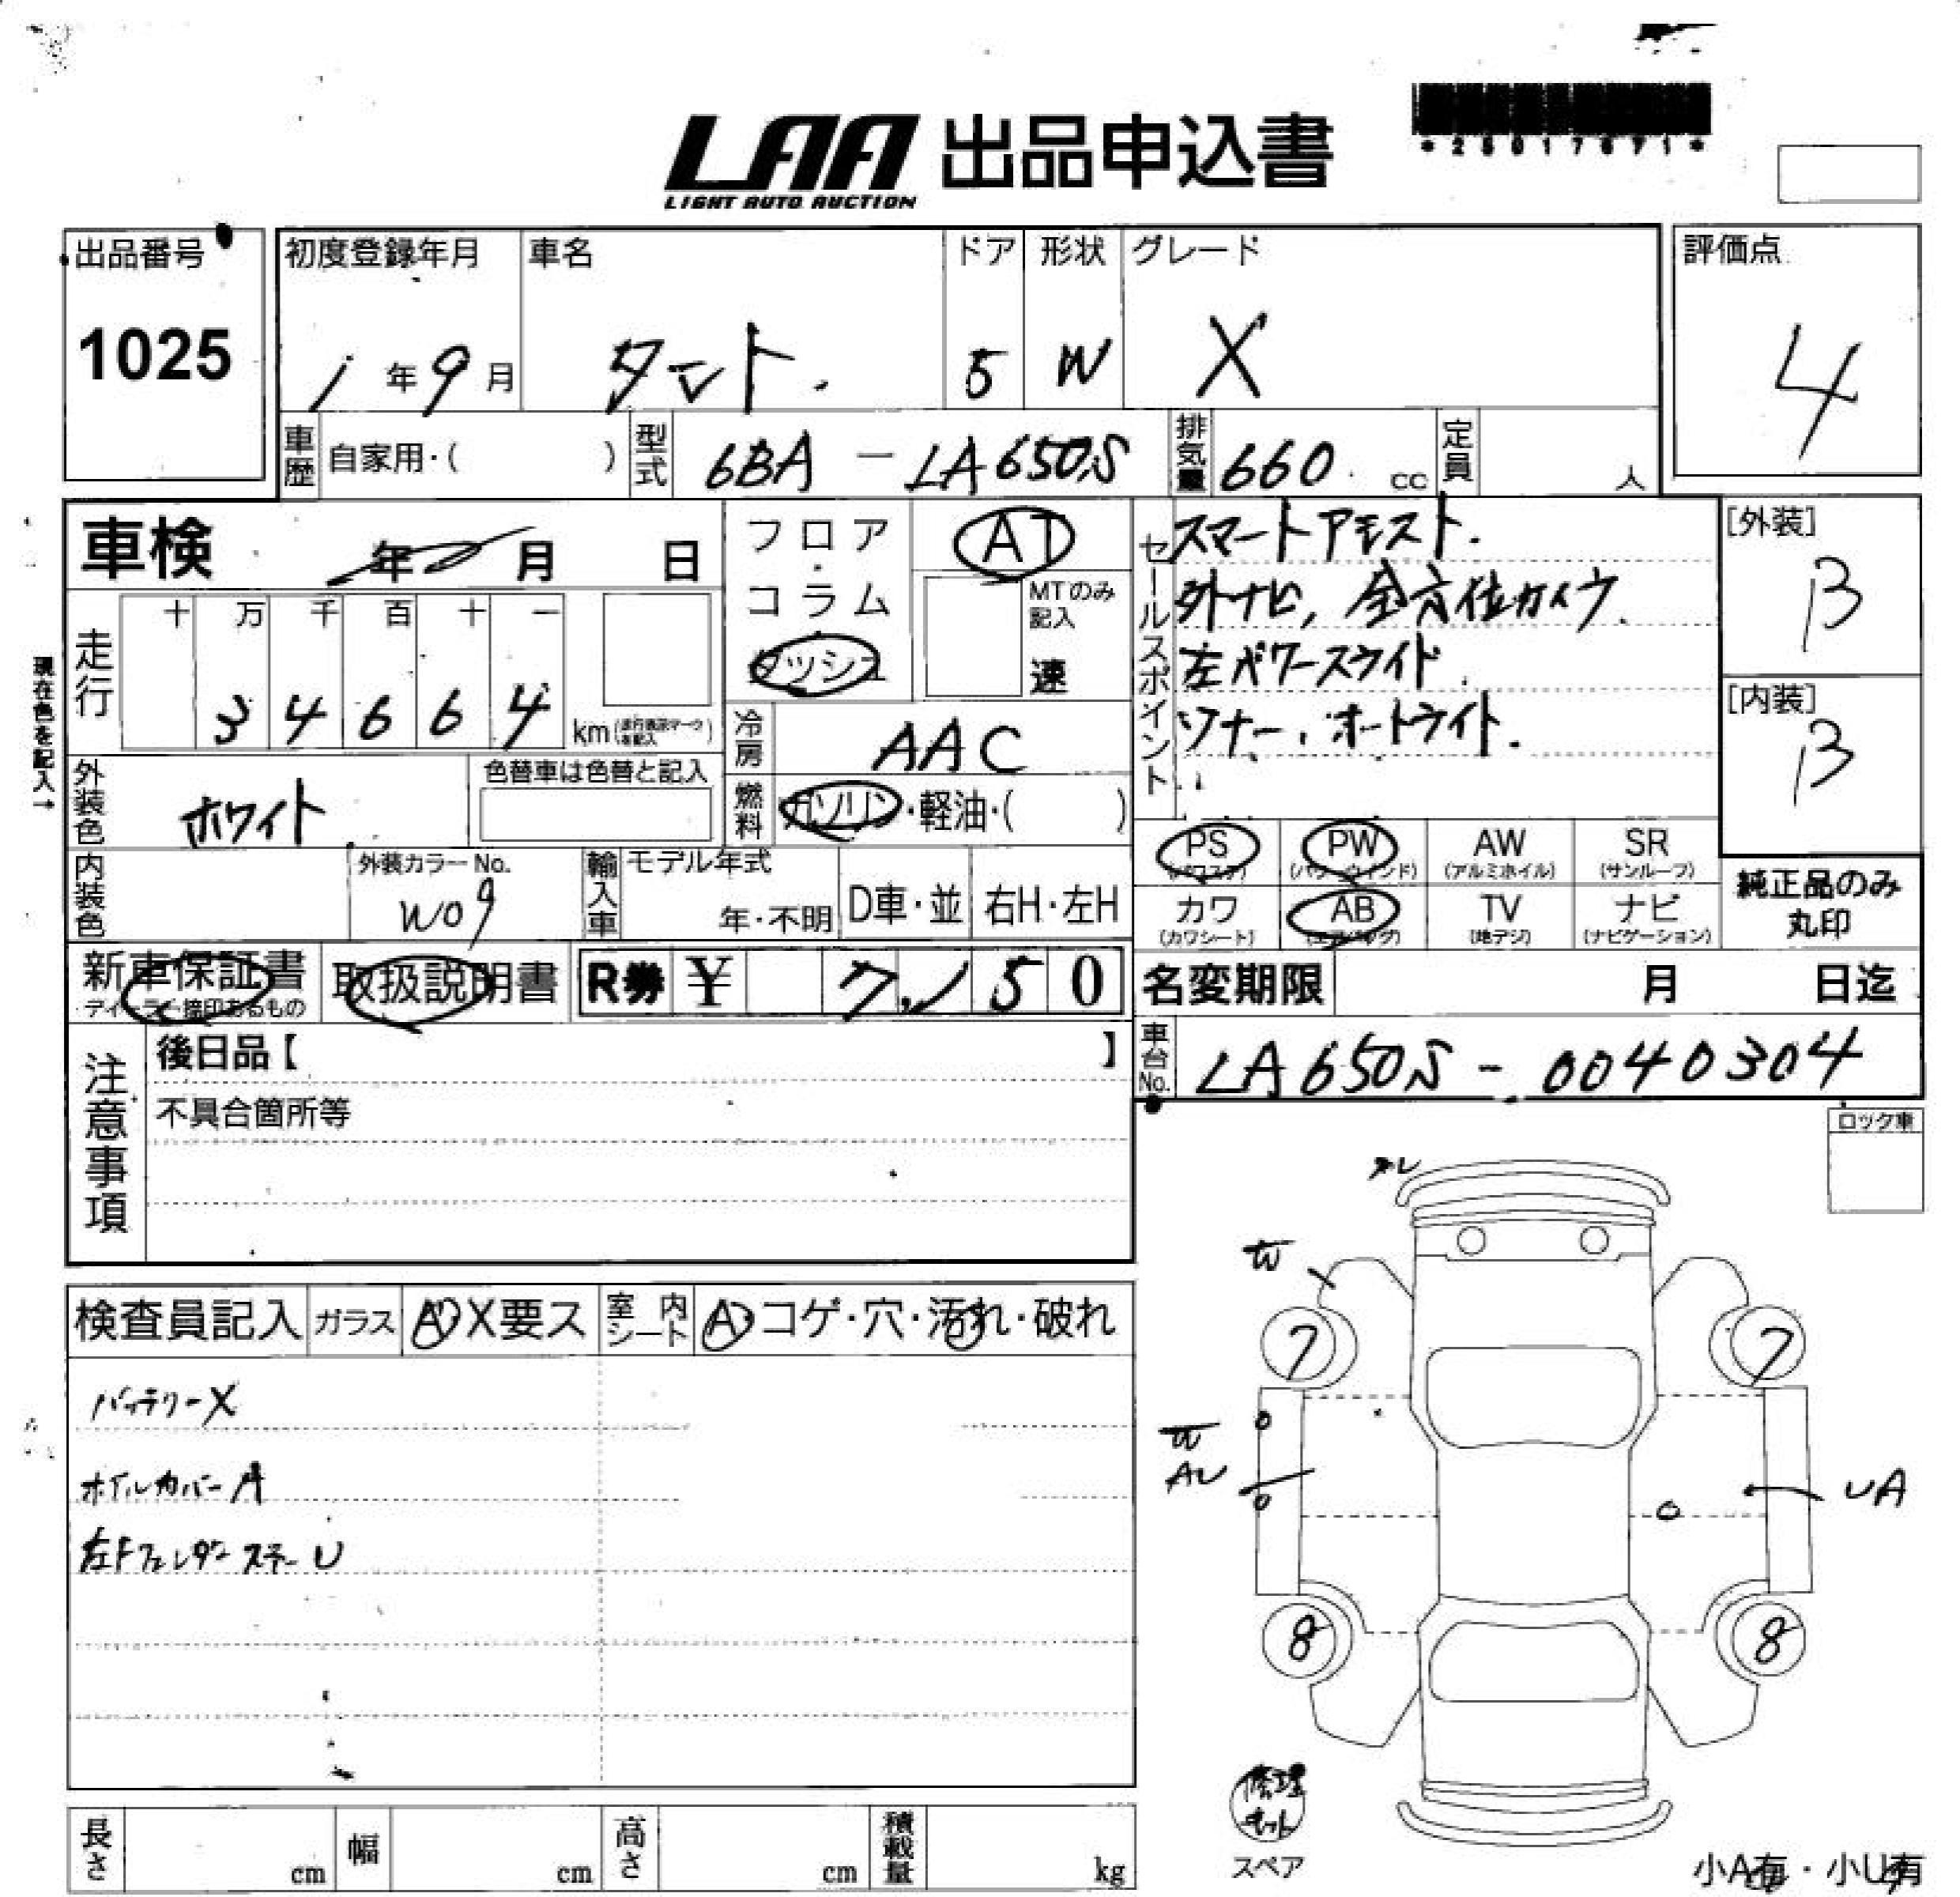 LAA 出品申込書
LIGHT AUTO AUCTION
*25017671*
出品番号
1025
初度登録年月
1年9月
車名
タント.
ドア
5
形状
W
グレード
X
評価点
4
車歴 自家用・( )
型式 6BA-LA650S
排気量 660 cc
定員 人
車検 年 月 日
走行 十 万 千 百 十 一
3 4 6 6 4 km
現在色を記入→
フロア・コラム
ダッシュ
AT
MTのみ記入
速
冷房 AAC
燃料 ガソリン・軽油・( )
セールスポイント
スマートアシスト.
外ナビ, 全方位カメラ.
左パワースライド
ソナー, オートライト.
[外装]
B
[内装]
B
外装色 ホワイト
色替車は色替と記入
内装色
外装カラーNo.
W09
輸入車 モデル年式
年・不明
D車・並
右H・左H
PS (パワステ)
PW (パワーウインド)
AW (アルミホイル)
SR (サンルーフ)
カワ (カワシート)
AB (エアバッグ)
TV (地デジ)
ナビ (ナビゲーション)
純正品のみ
丸印
新車保証書
ディーラー捺印あるもの
取扱説明書
R券 ¥ 7,150
名変期限 月 日迄
車台No. LA650S-0040304
注意事項
後日品【 】
不具合箇所等
ロック車
検査員記入 ガラス A・X要ス
室内シート A・コゲ・穴・汚れ・破れ
バッテリーX
ホイルカバーA
左Fフェンダーステー U
W
7
7
W
AU
UA
8
8
修理キット
スペア
長さ cm
幅 cm
高さ cm
積載量 kg
小A有・小U有